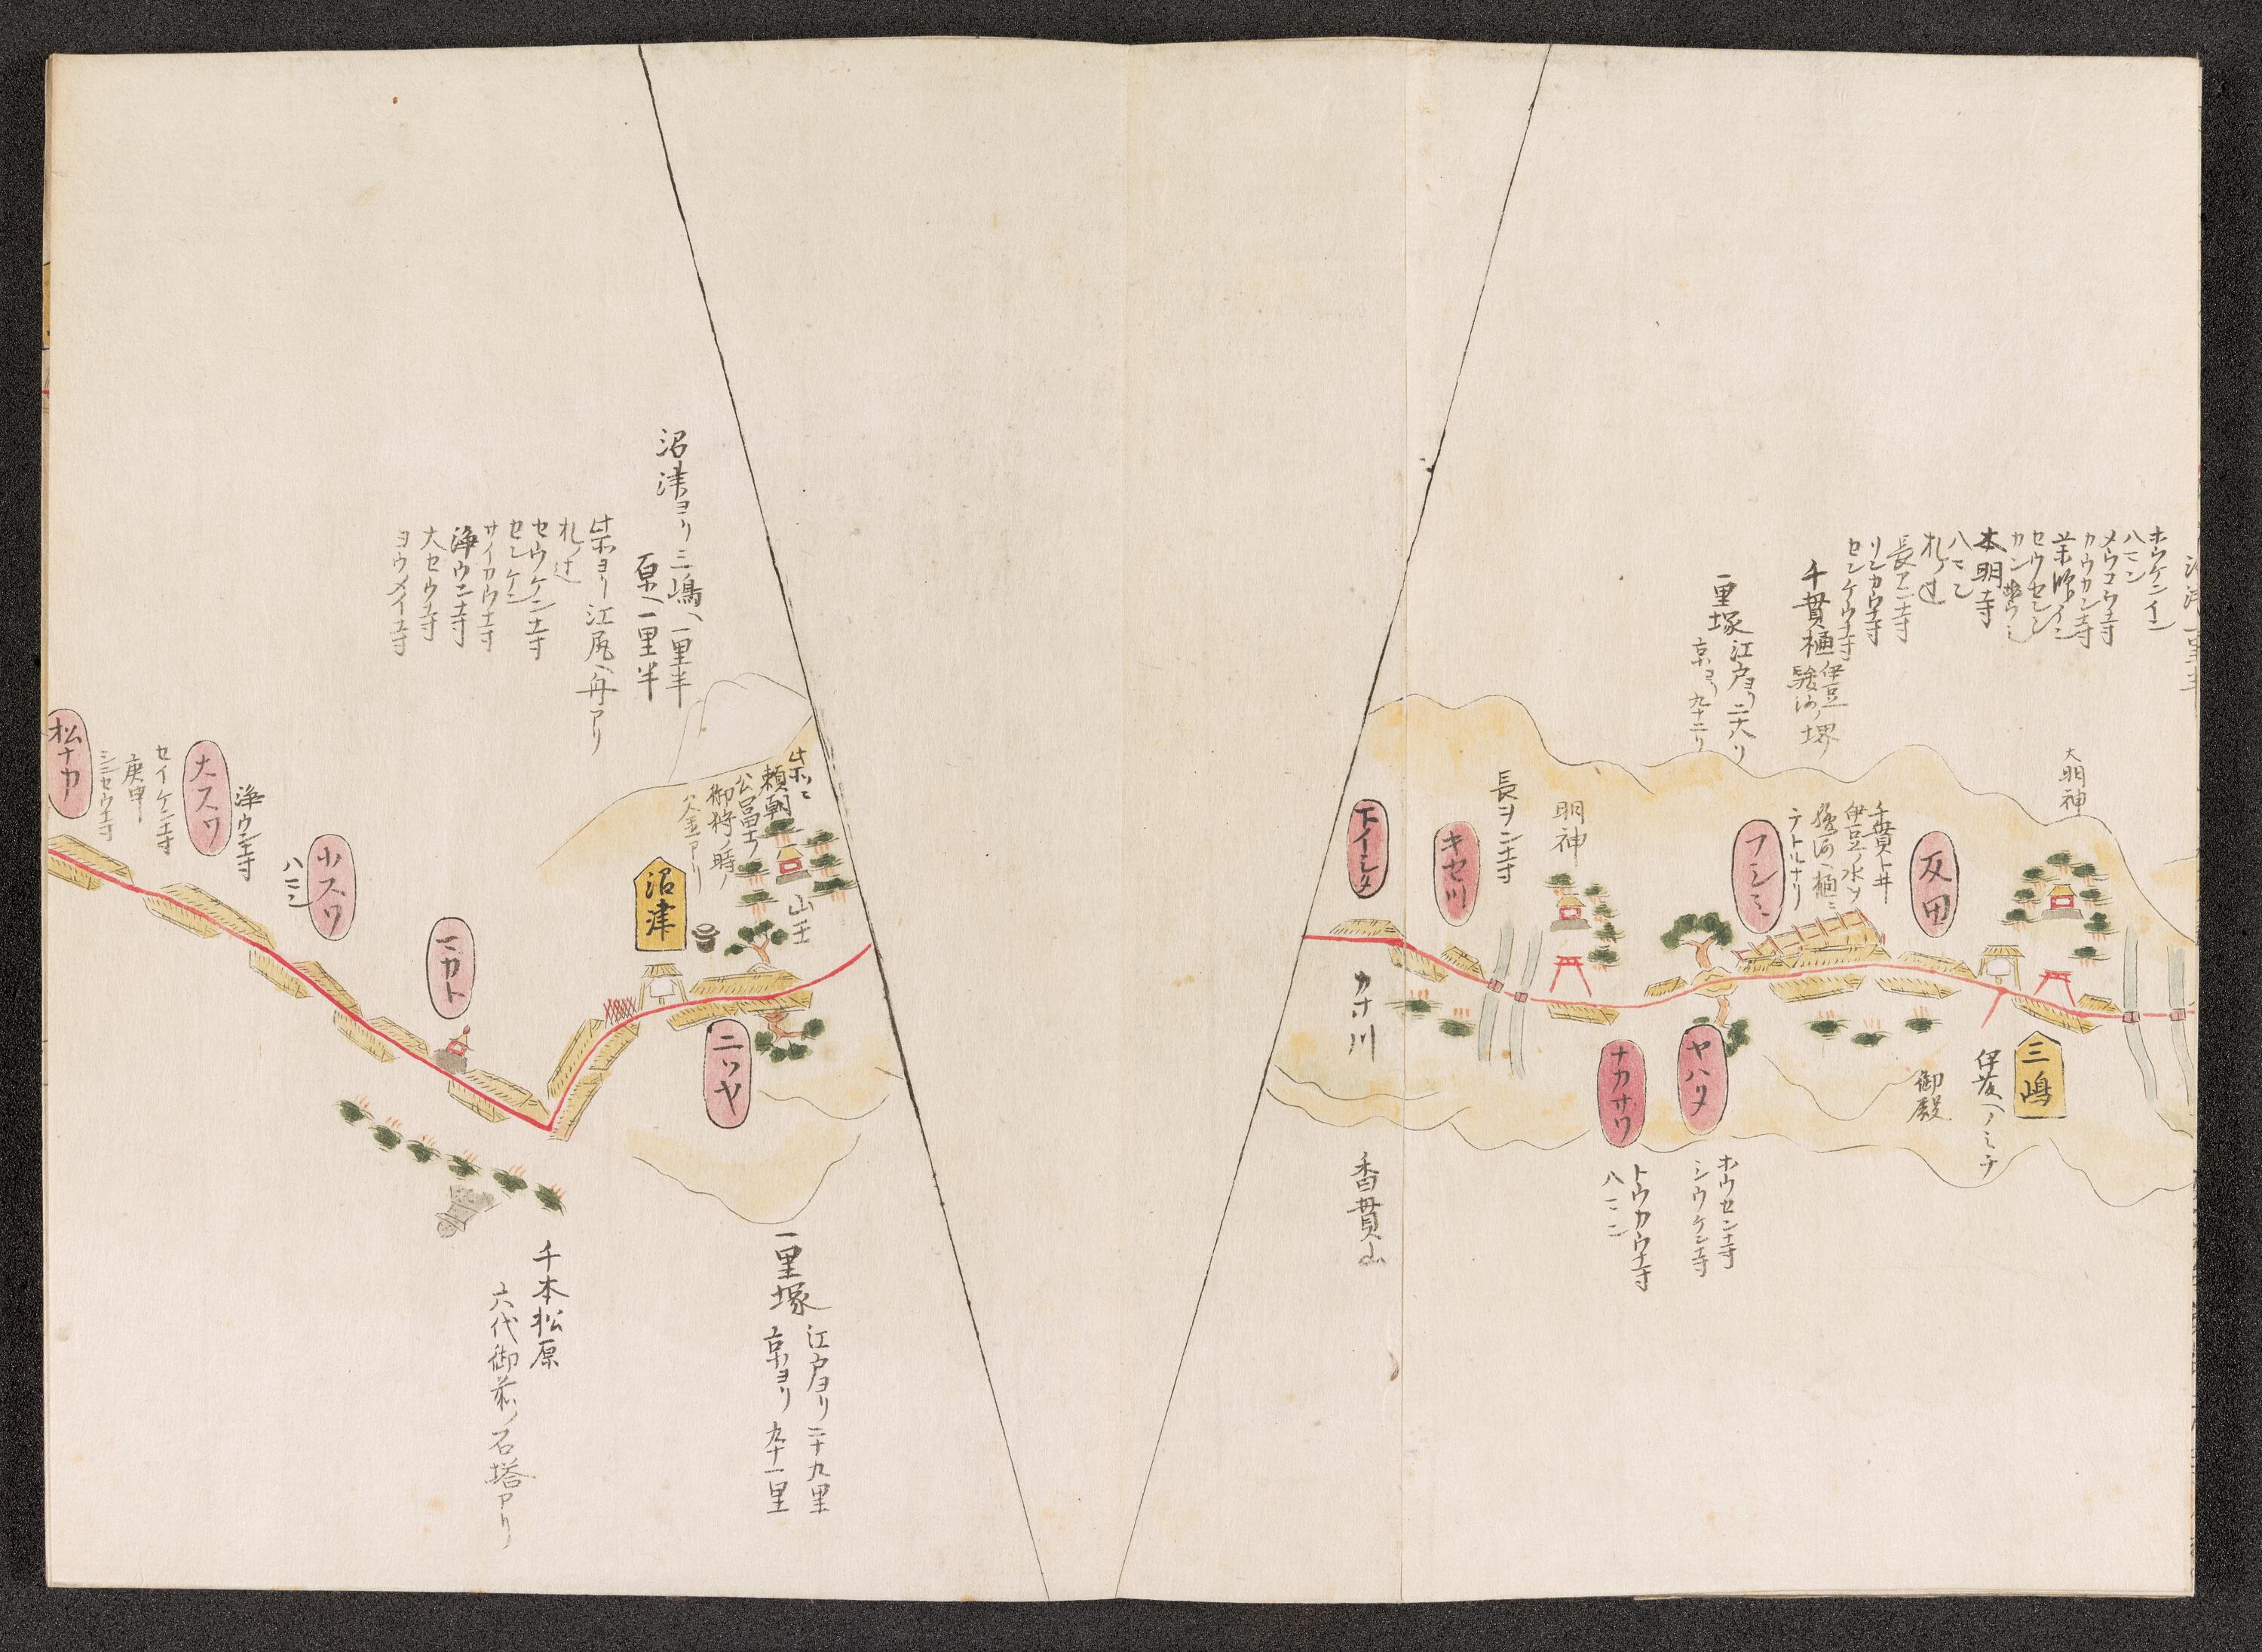 ホウケンイン
ハマン
メウコウ寺
カウカン寺
セウセン
本明寺
ハマン
札ノ辻
長アン寺
リンカウ寺
センケウ寺
千貫樋
伊豆
駿河ノ堺
一里塚
江戸ヨリ二十八リ
京ヨリ九十二リ
大明神
千貫トイ
伊豆ノ水ヲ
駿河ヘ樋ニ
テトルナリ
反田
フシミ
明神
長ヲン寺
キセ川
下イシタ
三嶋
伊豆ヘノミチ
御殿
ヤハタ
ナカサワ
ホウセン寺
シウケン寺
トウカウ寺
ハマン
カナ川
香貫山
沼津ヨリ三嶋ヘ一里半
原ヘ一里半
此ヨリ江尻ヘ舟アリ
札ノ辻
セウケン寺
センケン
サイカウ寺
浄ウン寺
大セウ寺
ヨウメイ寺
頼朝
公冨士ノ
御狩ノ時ノ
釜アリ
山王
沼津
三ツヤ
マカト
小スワ
ハマン
浄ウン寺
大スワ
セイケン寺
庚申
シンセウ寺
松ナカ
一里塚
江戸ヨリ二十九里
京ヨリ九十一里
千本松原
六代御前ノ石塔アリ